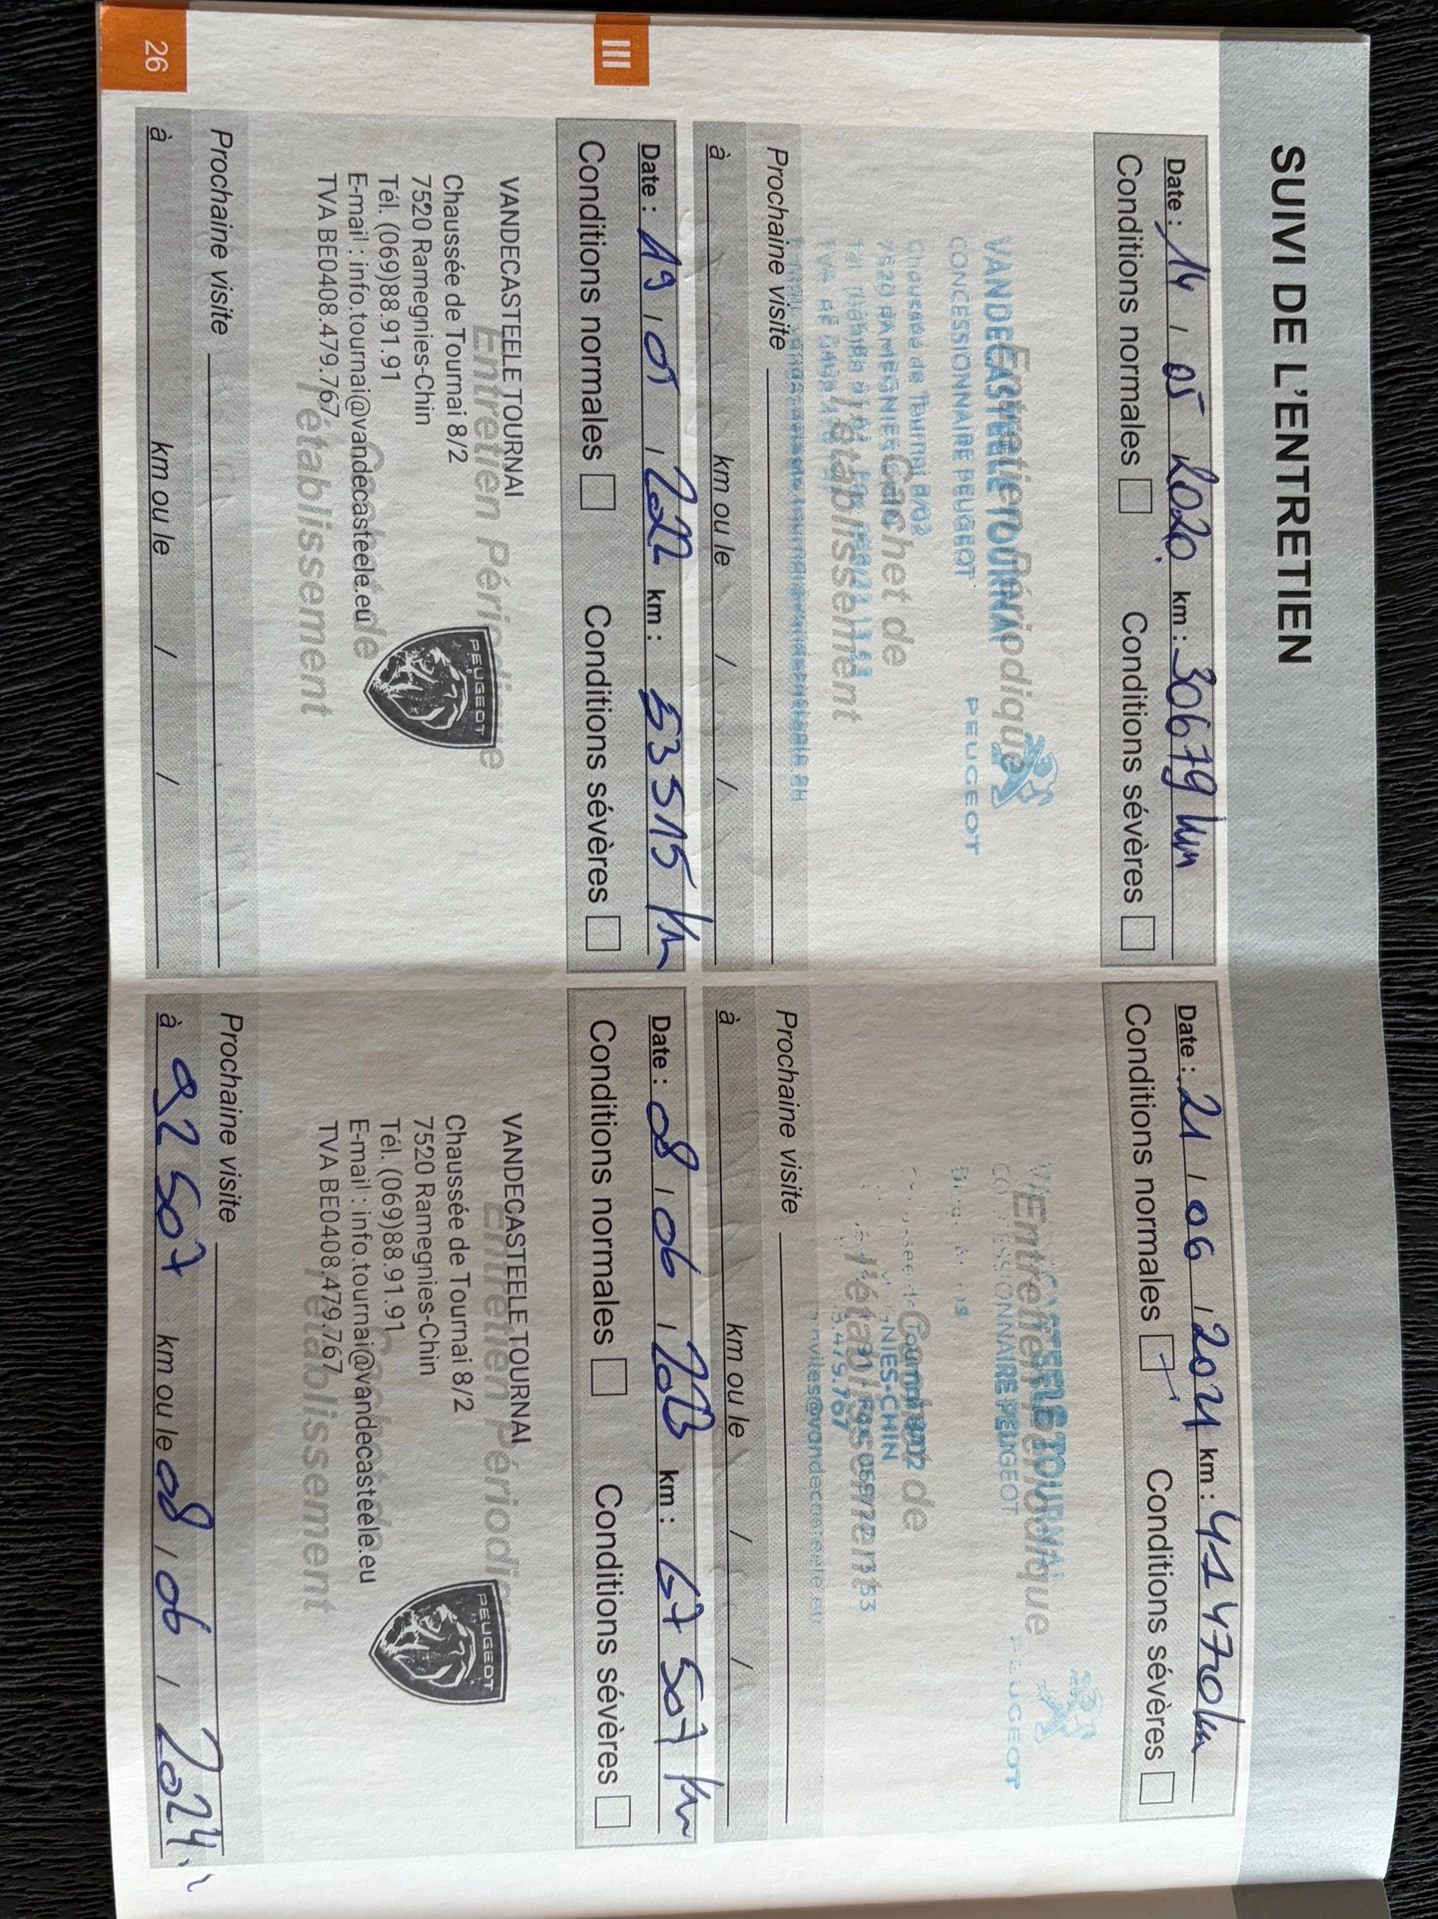 SUIVI DE L'ENTRETIEN
Date : 14 / 05 2020 km : 30679 km
Conditions normales Conditions sévères
Entretien Périodique
Cachet de
l'établissement
VANDECASTEELE TOURNAI
CONCESSIONNAIRE PEUGEOT
PEUGEOT
Chaussée de Tournai 8/02
7520 RAMEGNIES-CHIN
Prochaine visite
à km ou le / /
Date : 21 / 06 / 2021 km : 41470 km
Conditions normales Conditions sévères
Entretien Périodique
Cachet de
l'établissement
TOURNAI
CONCESSIONNAIRE PEUGEOT
PEUGEOT
Prochaine visite
à km ou le / /
III
Date : 19 / 05 / 2022 km : 53515 km
Conditions normales Conditions sévères
Entretien Périodique
Cachet de
l'établissement
VANDECASTEELE TOURNAI
Chaussée de Tournai 8/2
7520 Ramegnies-Chin
Tél. (069)88.91.91
E-mail : info.tournai@vandecasteele.eu
TVA BE0408.479.767
PEUGEOT
Prochaine visite
à km ou le / /
Date : 08 / 06 / 2023 km : 67 507 km
Conditions normales Conditions sévères
Entretien Périodique
Cachet de
l'établissement
VANDECASTEELE TOURNAI
Chaussée de Tournai 8/2
7520 Ramegnies-Chin
Tél. (069)88.91.91
E-mail : info.tournai@vandecasteele.eu
TVA BE0408.479.767
PEUGEOT
Prochaine visite
à 92 507 km ou le 08 / 06 / 2024
26